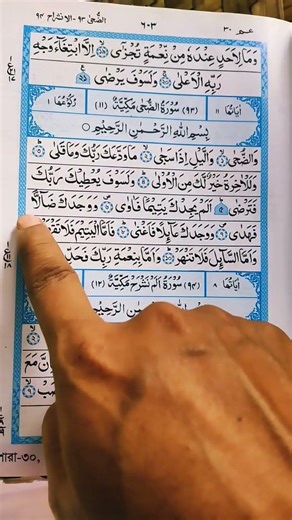 الضحى ٩٣- الانشراح ٩٤ ٦٠٣ عـم ٣٠
وَمَا لِاَحَدٍ عِنْدَهٗ مِنْ نِّعْمَةٍ تُجْزٰٓى ۙ اِلَّا ابْتِغَآءَ وَجْهِ
رَبِّهِ الْاَعْلٰى ۚ وَلَسَوْفَ يَرْضٰى
اٰيَاتُهَا ١١ (٩٣) سُوْرَةُ الضُّحٰى مَكِّيَّةٌ (١١) رُكُوْعُهَا ١
بِسْمِ اللّٰهِ الرَّحْمٰنِ الرَّحِيْمِ
وَالضُّحٰى ۙ وَالَّيْلِ اِذَا سَجٰى ۙ مَا وَدَّعَكَ رَبُّكَ وَمَا قَلٰى ؕ
وَلَلْاٰخِرَةُ خَيْرٌ لَّكَ مِنَ الْاُوْلٰى ؕ وَلَسَوْفَ يُعْطِيْكَ رَبُّكَ
فَتَرْضٰى ؕ اَلَمْ يَجِدْكَ يَتِيْمًا فَاٰوٰى ۪ وَوَجَدَكَ ضَآلًّا
فَهَدٰى ۪ وَوَجَدَكَ عَآئِلًا فَاَغْنٰى ؕ فَاَمَّا الْيَتِيْمَ فَلَا تَقْهَرْ
وَاَمَّا السَّآئِلَ فَلَا تَنْهَرْ ؕ وَاَمَّا بِنِعْمَةِ رَبِّكَ فَحَدِّ
اٰيَاتُهَا ٨ (٩٤) سُوْرَةُ اَلَمْ نَشْرَحْ مَكِّيَّةٌ (١٢)
مٰنِ الرَّحِيْمِ
مَعَ
পারা-৩০,